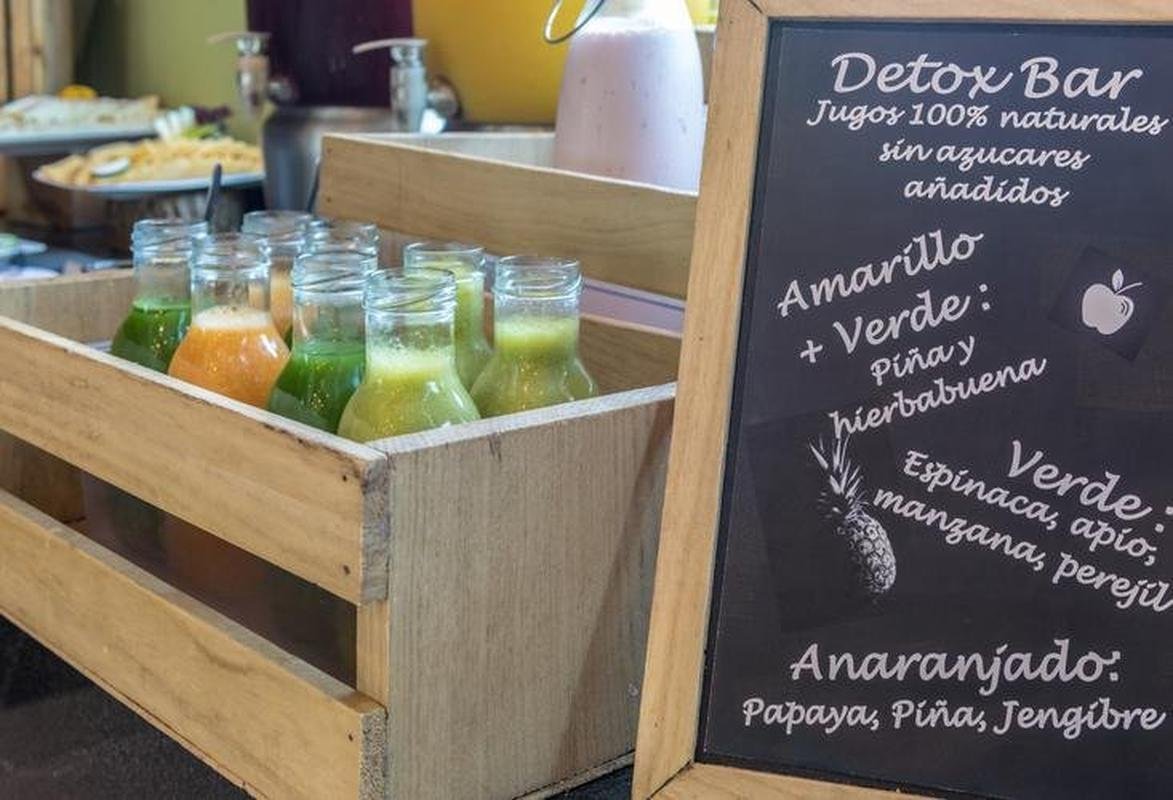 Detox Bar
Jugos 100% naturales
sin azucares
añadidos
Amarillo
+ Verde :
Piña y
hierbabuena
Verde :
Espinaca, apio,
manzana, perejil
Anaranjado:
Papaya, Piña, Jengibre